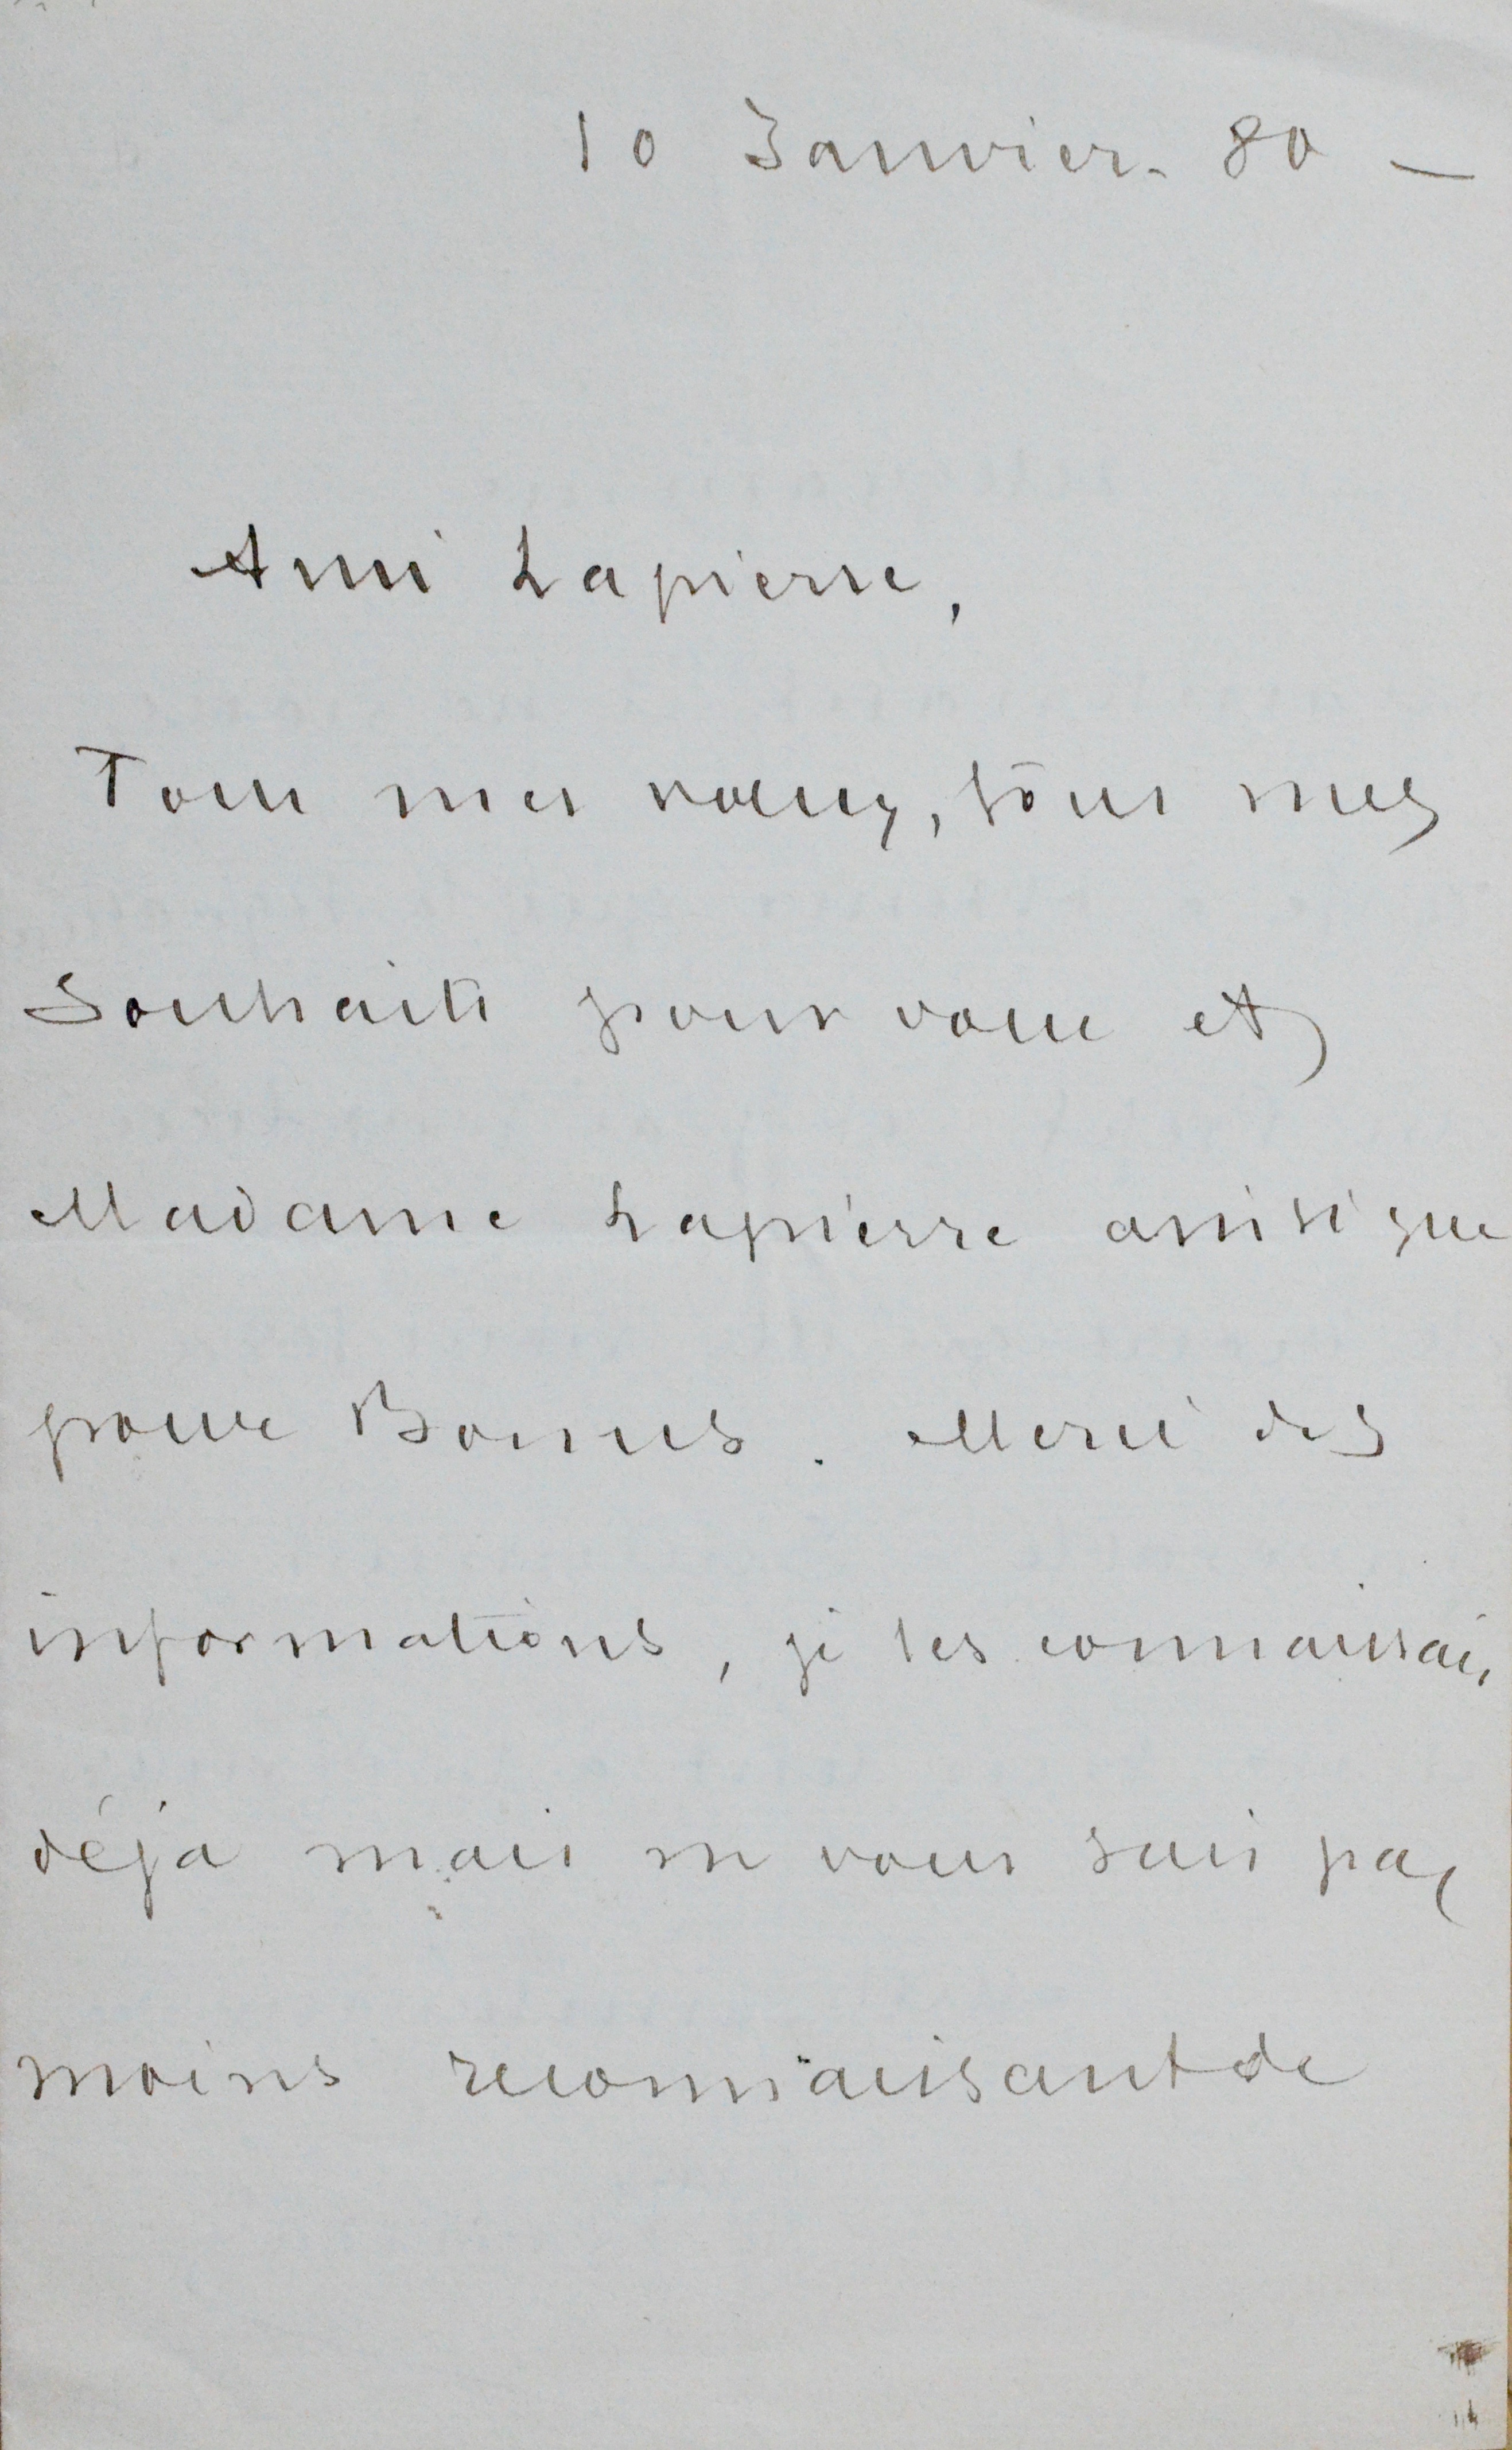 10 Janvier. 80 —
Ami Lapierre,
Tous mes vœux, tous mes
souhaits pour vous et
Madame Lapierre ainsi que
pour Bonus. Merci des
informations, je les connaissais
déjà mais ne vous suis pas
moins reconnaissant de